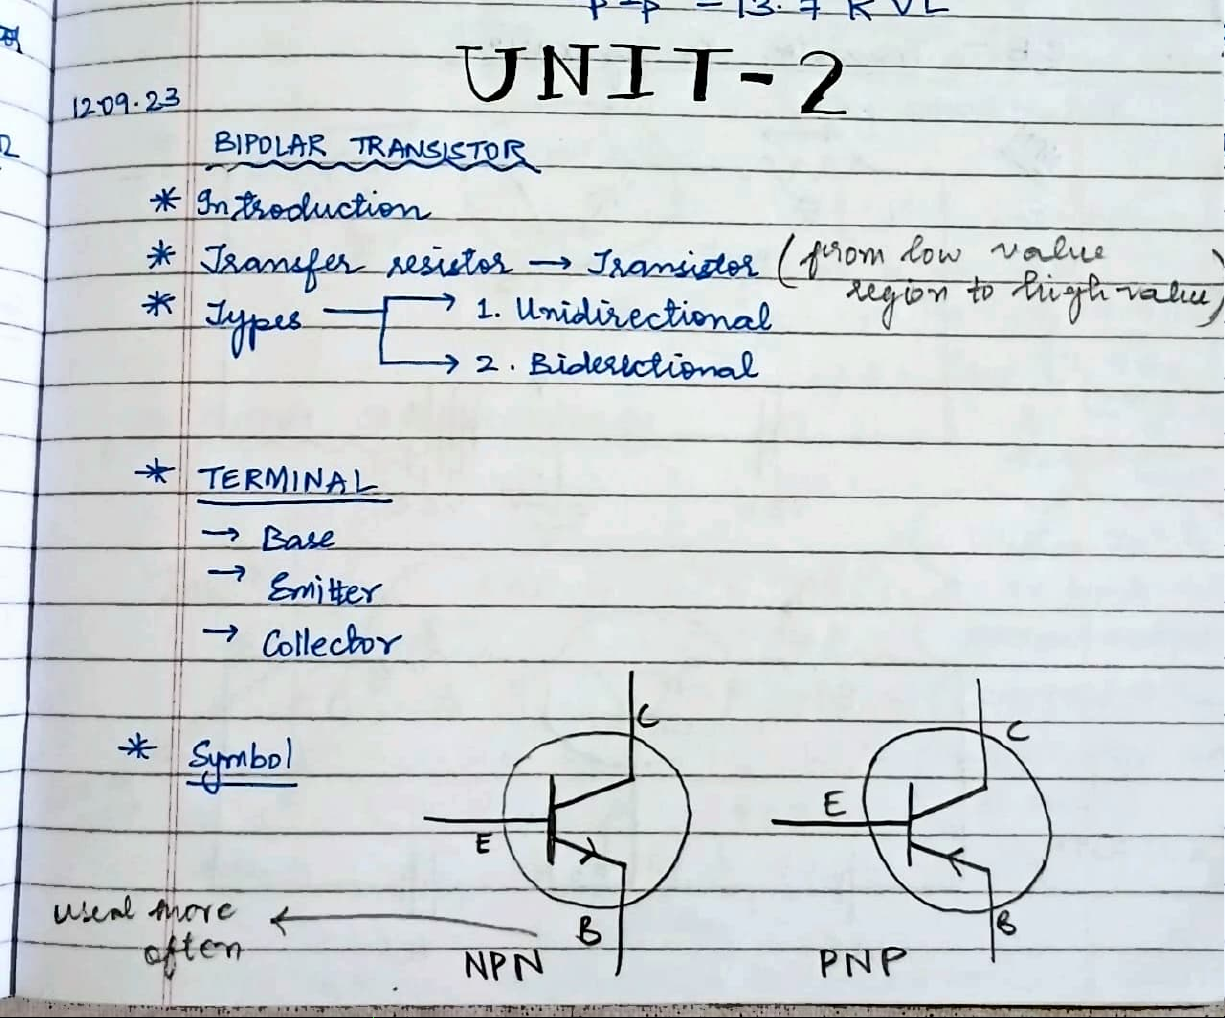 P-P = 13.7 K
UNIT-2
12.09.23
BIPOLAR TRANSISTOR
* Introduction
* Transfer resistor → Transistor (from low value
region to high value)
* Types → 1. Unidirectional
→ 2. Biderectional
* TERMINAL
→ Base
→ Emitter
→ Collector
* Symbol
C
C
E
E
used more
often
B
B
NPN
PNP